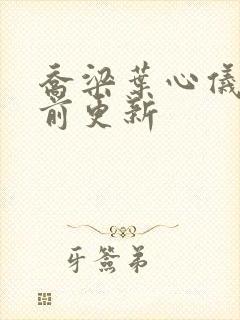 乔梁叶心仪
前更新
牙签弟